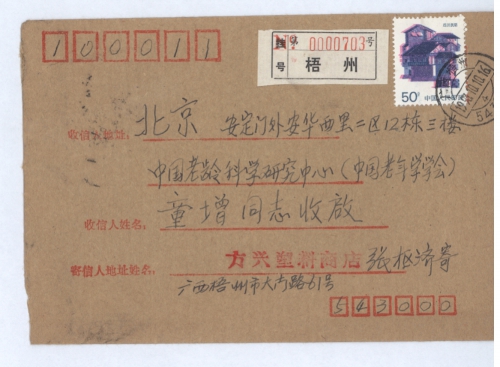 100011
挂号 第0000703号
梧州
50分 中国人民邮政
收信人地址: 北京 安定门外安华西里二区12栋三楼
中国老龄科学研究中心(中国老年学学会)
收信人姓名: 童增同志收啟
寄信人地址姓名: 方兴塑料商店 张枢济寄
广西梧州市大南路61号
543000